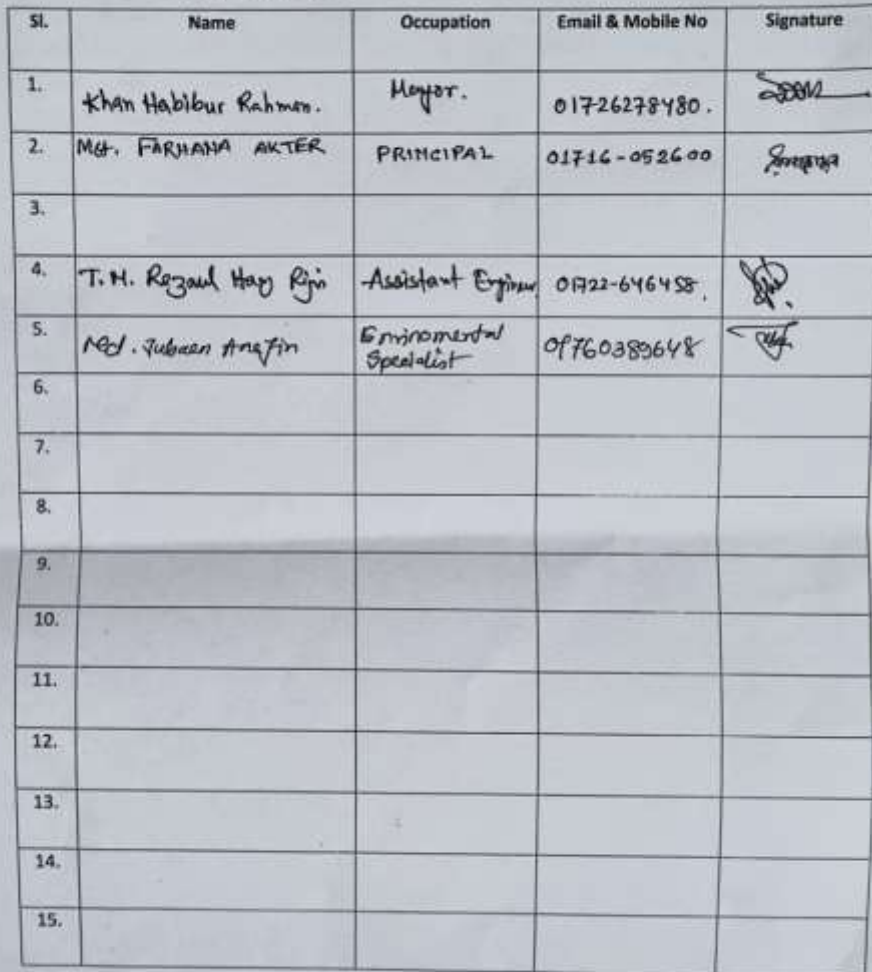 Sl. Name Occupation Email & Mobile No Signature
1. Khan Habibur Rahman. Meyor. 01726278480.
2. Mst. FARHANA AKTER PRINCIPAL 01716-052600
3.
4. T.M. Rezaul Haq Assistant Engineer 01722-646458.
5. Md. Enviromental
Specialist 01760389648
6.
7.
8.
9.
10.
11.
12.
13.
14.
15.